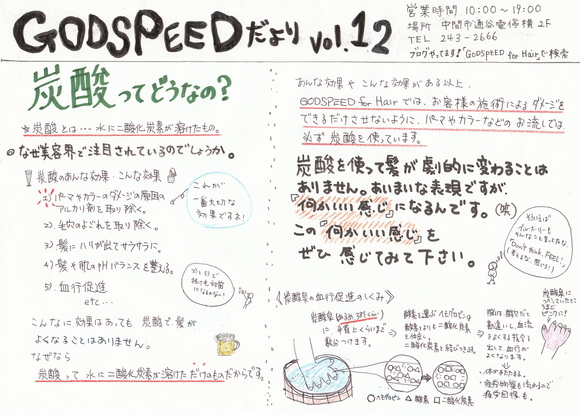 GODSPEEDだより vol.12
営業時間 10:00～19:00
場所 中間市通谷電停横 2F
TEL 243-2666
ブログやってます!「GODSPEED for Hair」で検索
炭酸ってどうなの?
☆炭酸とは…水に二酸化炭素が溶けたもの。
◎なぜ美容界で注目されているのでしょうか。
炭酸のあんな効果・こんな効果
1)パーマやカラーのダメージの原因の
アルカリ剤を取り除く。
2)毛穴のよごれを取り除く。
3)髪にハリが出てサラサラに。
4)髪や肌のpHバランスを整える。
5)血行促進
etc…
これが
一番大切な
効果ですよ!
こんなに効果はあっても 炭酸で髪が
よくなることはありません。
なぜなら
炭酸って水に二酸化炭素が溶けただけのものだからです。
あんな効果やこんな効果がある以上
GODSPEED for Hairでは、お客様の施術によるダメージを
できるだけさせないように、パーマやカラーなどのお流しでは
必ず 炭酸を使っています。
炭酸を使って髪が劇的に変わることは
ありません。あいまいな表現ですが、
『何かいい感じ』になるんです。(笑)
この『何かいい感じ』を
ぜひ 感じてみて下さい。
そういえば
ブルース・リーも
そんなこと言ってたな。
"Don't think. FEEL!"
(考えるな、感じろ!)
《炭酸泉の血行促進のしくみ》
炭酸泉(ぬるめ 37℃くらい)
に手首上くらいまで
数分つけます。
酸素を運ぶヘモグロビンは
酸素よりも二酸化炭素
と仲良し。
二酸化炭素と結びつきます。
脳は、酸欠だと
勘違いし、血流
をよくする指令を
出して血行が
よくなります。
・体があたたまる。
・疲労物質も流れるので
疲労回復も。
炭酸泉に
つかっていた
ところが
ピンクに!
○ヘモグロビン △酸素 □二酸化炭素